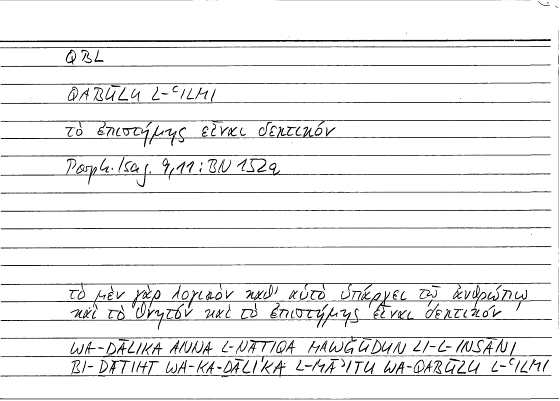 QBL
QABŪLU L-ʿILMI
τὸ ἐπιστήμης εἶναι δεκτικόν
Porph. Isag. 9,11: BN 152a
τὸ μὲν γὰρ λογικὸν καθ' αὑτὸ ὑπάρχει τῷ ἀνθρώπῳ
καὶ τὸ θνητὸν καὶ τὸ ἐπιστήμης εἶναι δεκτικόν
WA-ḎĀLIKA ANNA L-NĀṬIQA MAWǦŪDUN LI-L-INSĀNI
BI-ḎĀTIHĪ WA-KA-ḎĀLIKA L-MĀʾITU WA-QABŪLU L-ʿILMI